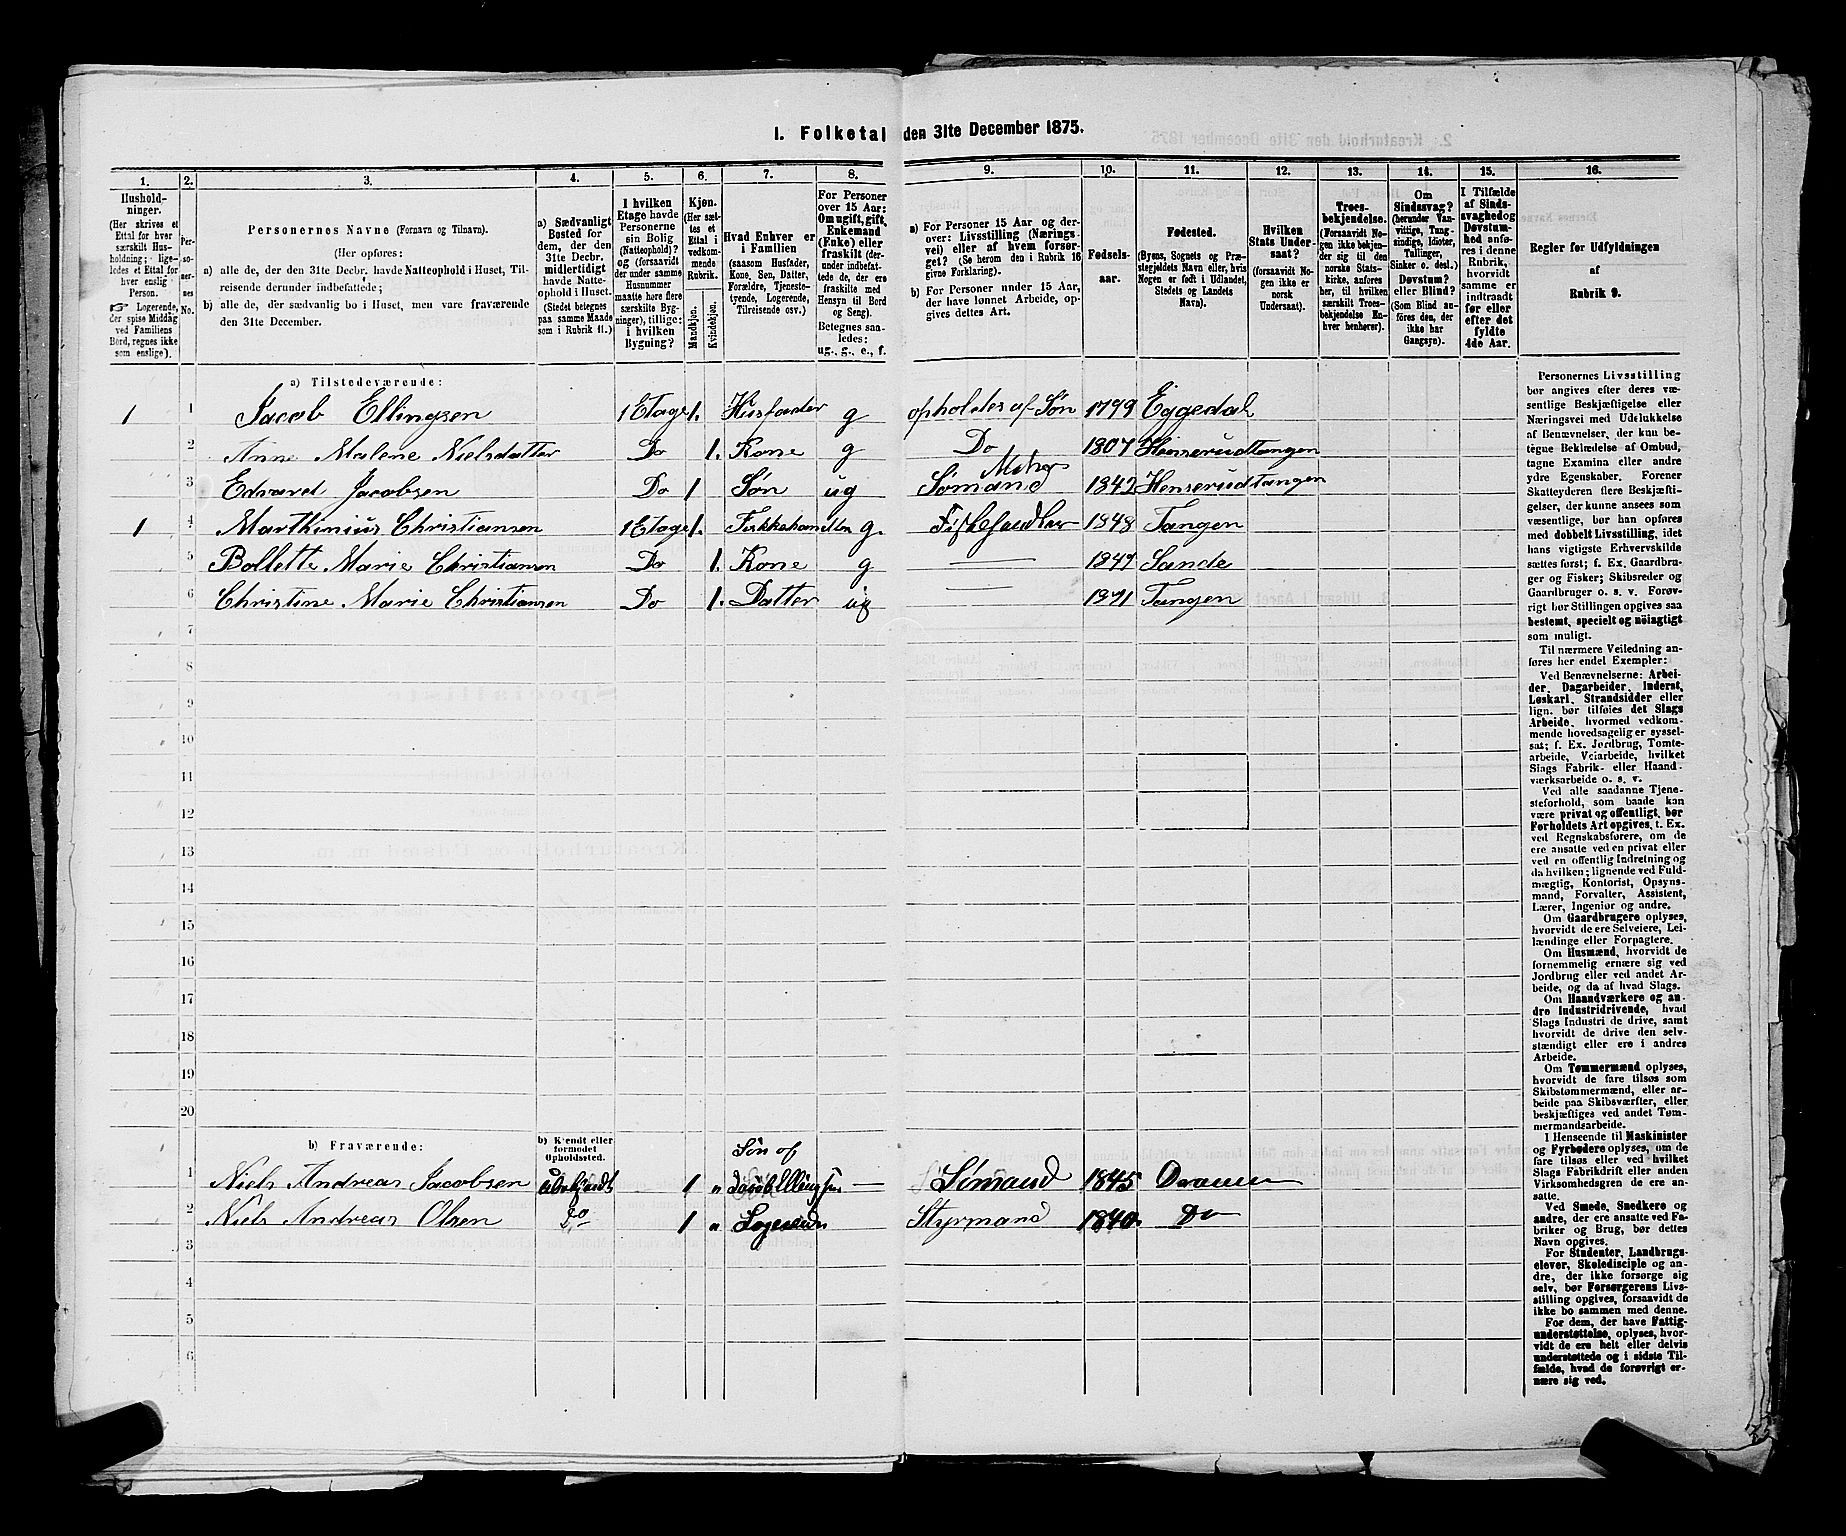 I. Folketal den 31te December 1875.
1. 2. 3. 4. 5. 6. 7. 8. 9. 10. 11. 12. 13. 14. 15. 16.
Husholdninger.
(Her skrives et
Ettal for hver
særskilt Husholdning;
ligeledes et Ettal for
hver enslig
Person.
☞ Logerende,
der spise Middag
ved Familiens
Bord, regnes ikke
som enslige).
Personernes
No.
Personernes Navne (Fornavn og Tilnavn).
(Her opføres:
a) alle de, der den 31te Decbr. havde Natteophold i Huset, Tilreisende derunder indbefattede;
b) alle de, der sædvanlig bo i Huset, men vare fraværende
den 31te December.
a) Sædvanligt
Bosted for
dem, der den
31te Decbr.
midlertidigt
havde Natteophold i Huset.
(Stedet betegnes
paa samme Maade
som i Rubrik 11.)
I hvilken
Etage havde
Personerne
sin Bolig
(Natteophold)?
og (forsaavidt
der under samme
Husnummer
maatte høre flere
særskilte Bygninger), tillige:
i hvilken
Bygning?
Kjøn.
(Her sættes et
Ettal i
vedkommende
Rubrik.
Mandkjøn.
Kvindekjøn.
Hvad Enhver er
i Familien
(saasom Husfader,
Kone, Søn, Datter,
Forældre, Tjenestetyende, Logerende,
Tilreisende osv.)
For Personer
over 15 Aar:
Om ugift, gift,
Enkemand
(Enke) eller
fraskilt (derunder indbefattede de, der ere
fraskilte med
Hensyn til Bord
og Seng).
Betegnes saaledes:
ug., g., e., f.
a) For Personer 15 Aar og derover: Livsstilling (Næringsvei) eller af hvem forsørget? (Se herom den i Rubrik 16
givne Forklaring).
b) For Personer under 15 Aar,
der have lønnet Arbeide, opgives dettes Art.
Fødselsaar.
Fødested.
(Byens, Sognets og Præstegjeldets Navn eller, hvis
Nogen er født i Udlandet,
Stedets og Landets
Navn).
Hvilken
Stats Undersaat?
(forsaavidt Nogen ikke er
norsk
Undersaat).
Troesbekjendelse.
(Forsaavidt Nogen ikke bekjender sig til den
norske Statskirke, anføres
her, til hvilken
særskilt Troesbekjendelse Enhver henhører).
Om
Sindssvag?
(herunder Vanvittige, Tungsindige, Idioter,
Tullinger,
Sinker o. desl.)
Døvstum?
eller Blind?
(Som Blind anføres den, der
ikke har
Gangsyn).
I Tilfælde
af Sindssvaghed og
Døvstumhed anføres i denne
Rubrik,
hvorvidt
samme er
indtraadt
før eller
efter det
fyldte
4de Aar.
Regler for Udfyldningen
af
Rubrik 9.
a) Tilstedeværende:
1 1 Jacob Ellingsen 1 Etage 1. Husfader g opholdes af Søn 1799 Eggedal
2 Anne Malene Nielsdatter Do 1. Kone g Do 1807 Henserudtangen
3 Edvard Jacobsen Do 1 Søn ug Sømand 1842 Henserudtangen
1 4 Marthinius Christiansen 1 Etage 1. Fiskehandler g. Fiskehandler 1848 Tangen
5 Bollette Marie Christiansen Do 1. Kone g — 1847 Sande
6 Christine Marie Christiansen Do 1. Datter ug — 1871 Tangen
7
8
9
10
11
12
13
14
15
16
17
18
19
20
b) Fraværende:
b) Kjendt eller
formodet
Opholdssted.
Søn af
1 Niels Andreas Jacobsen ubekjendt 1 " Jacob Ellingsen — Sømand 1845 Drammen
2 Niels Andreas Olsen Do 1 " Logerende Styrmand 1840 Do
3
4
5
6
Personernes Livsstilling
bør angives efter deres væsentlige Beskjæftigelse eller
Næringsvei med Udelukkelse
af Benævnelser, der kun betegne Beklædelse af Ombud,
tagne Examina eller andre
ydre Egenskaber. Forener
Skatteyderen flere Beskjæftigelser, der kunne ansees som
væsentlige, bør han opføres
med dobbelt Livsstilling, idet
hans vigtigste Erhvervskilde
sættes først; f. Ex. Gaardbruger og Fisker; Skibsreder og
Gaardbruger o. s. v. Forøvrigt bør Stillingen opgives saa
bestemt, specielt og nöiagtigt
som muligt.
Til nærmere Veiledning anføres her endel Exempler:
Ved Benævnelserne: Arbeider, Dagarbeider, Inderst,
Løskarl, Strandsidder eller
lign. bør tilføies det Slags
Arbeide, hvormed vedkommende hovedsagelig er sysselsat; f. Ex. Jordbrug, Tomtearbeide, Veiarbeide, hvilket
Slags Fabrik- eller Haandværksarbeide o. s. v.
Ved alle saadanne Tjenesteforhold, som baade kan
være privat og offentligt, bør
Forholdets Art opgives, t. Ex.
ved Regnskabsførere, om de
ere ansatte ved en privat eller
ved en offentlig Indretning og
da hvilken; lignende ved Fuldmægtig, Kontorist, Opsynsmand, Forvalter, Assistent,
Lærer, Ingeniør og andre.
Om Gaardbrugere oplyses,
hvorvidt de ere Selveiere, Leilændinge eller Forpagtere.
Om Husmænd, hvorvidt de
fornemmelig ernære sig ved
Jordbrug eller ved andet Arbeide, og da af hvad Slags.
Om Haandværkere og andre Industridrivende, hvad
Slags Industri de drive, samt
hvorvidt de drive den selvstændigt eller ere i andres
Arbeide.
Om Tømmermænd oplyses,
hvorvidt de fare tilsøs som
Skibstømmermænd, eller arbeide paa Skibsværfter, eller
beskjæftiges ved andet Tømmermandsarbeide.
I Henseende til Maskinister
og Fyrbødere oplyses, om de
fare tilsøs eller ved hvilket
Slags Fabrikdrift eller anden
Virksomhedsgren de ere ansatte.
Ved Smede, Snedkere og
andre, der ere ansatte ved Fabriker og Brug, bør dettes
Navn opgives.
For Studenter, Landbrugselever, Skoledisciple og andre, der ikke forsørge sig
selv, bør Forsørgerens Livsstilling opgives, forsaavidt de
ikke bo sammen med denne.
For dem, der have Fattigunderstøttelse, oplyses, hvorvidt de ere helt eller delvis
understøttede og i sidste Tilfælde, hvad de forøvrigt ernære sig ved.